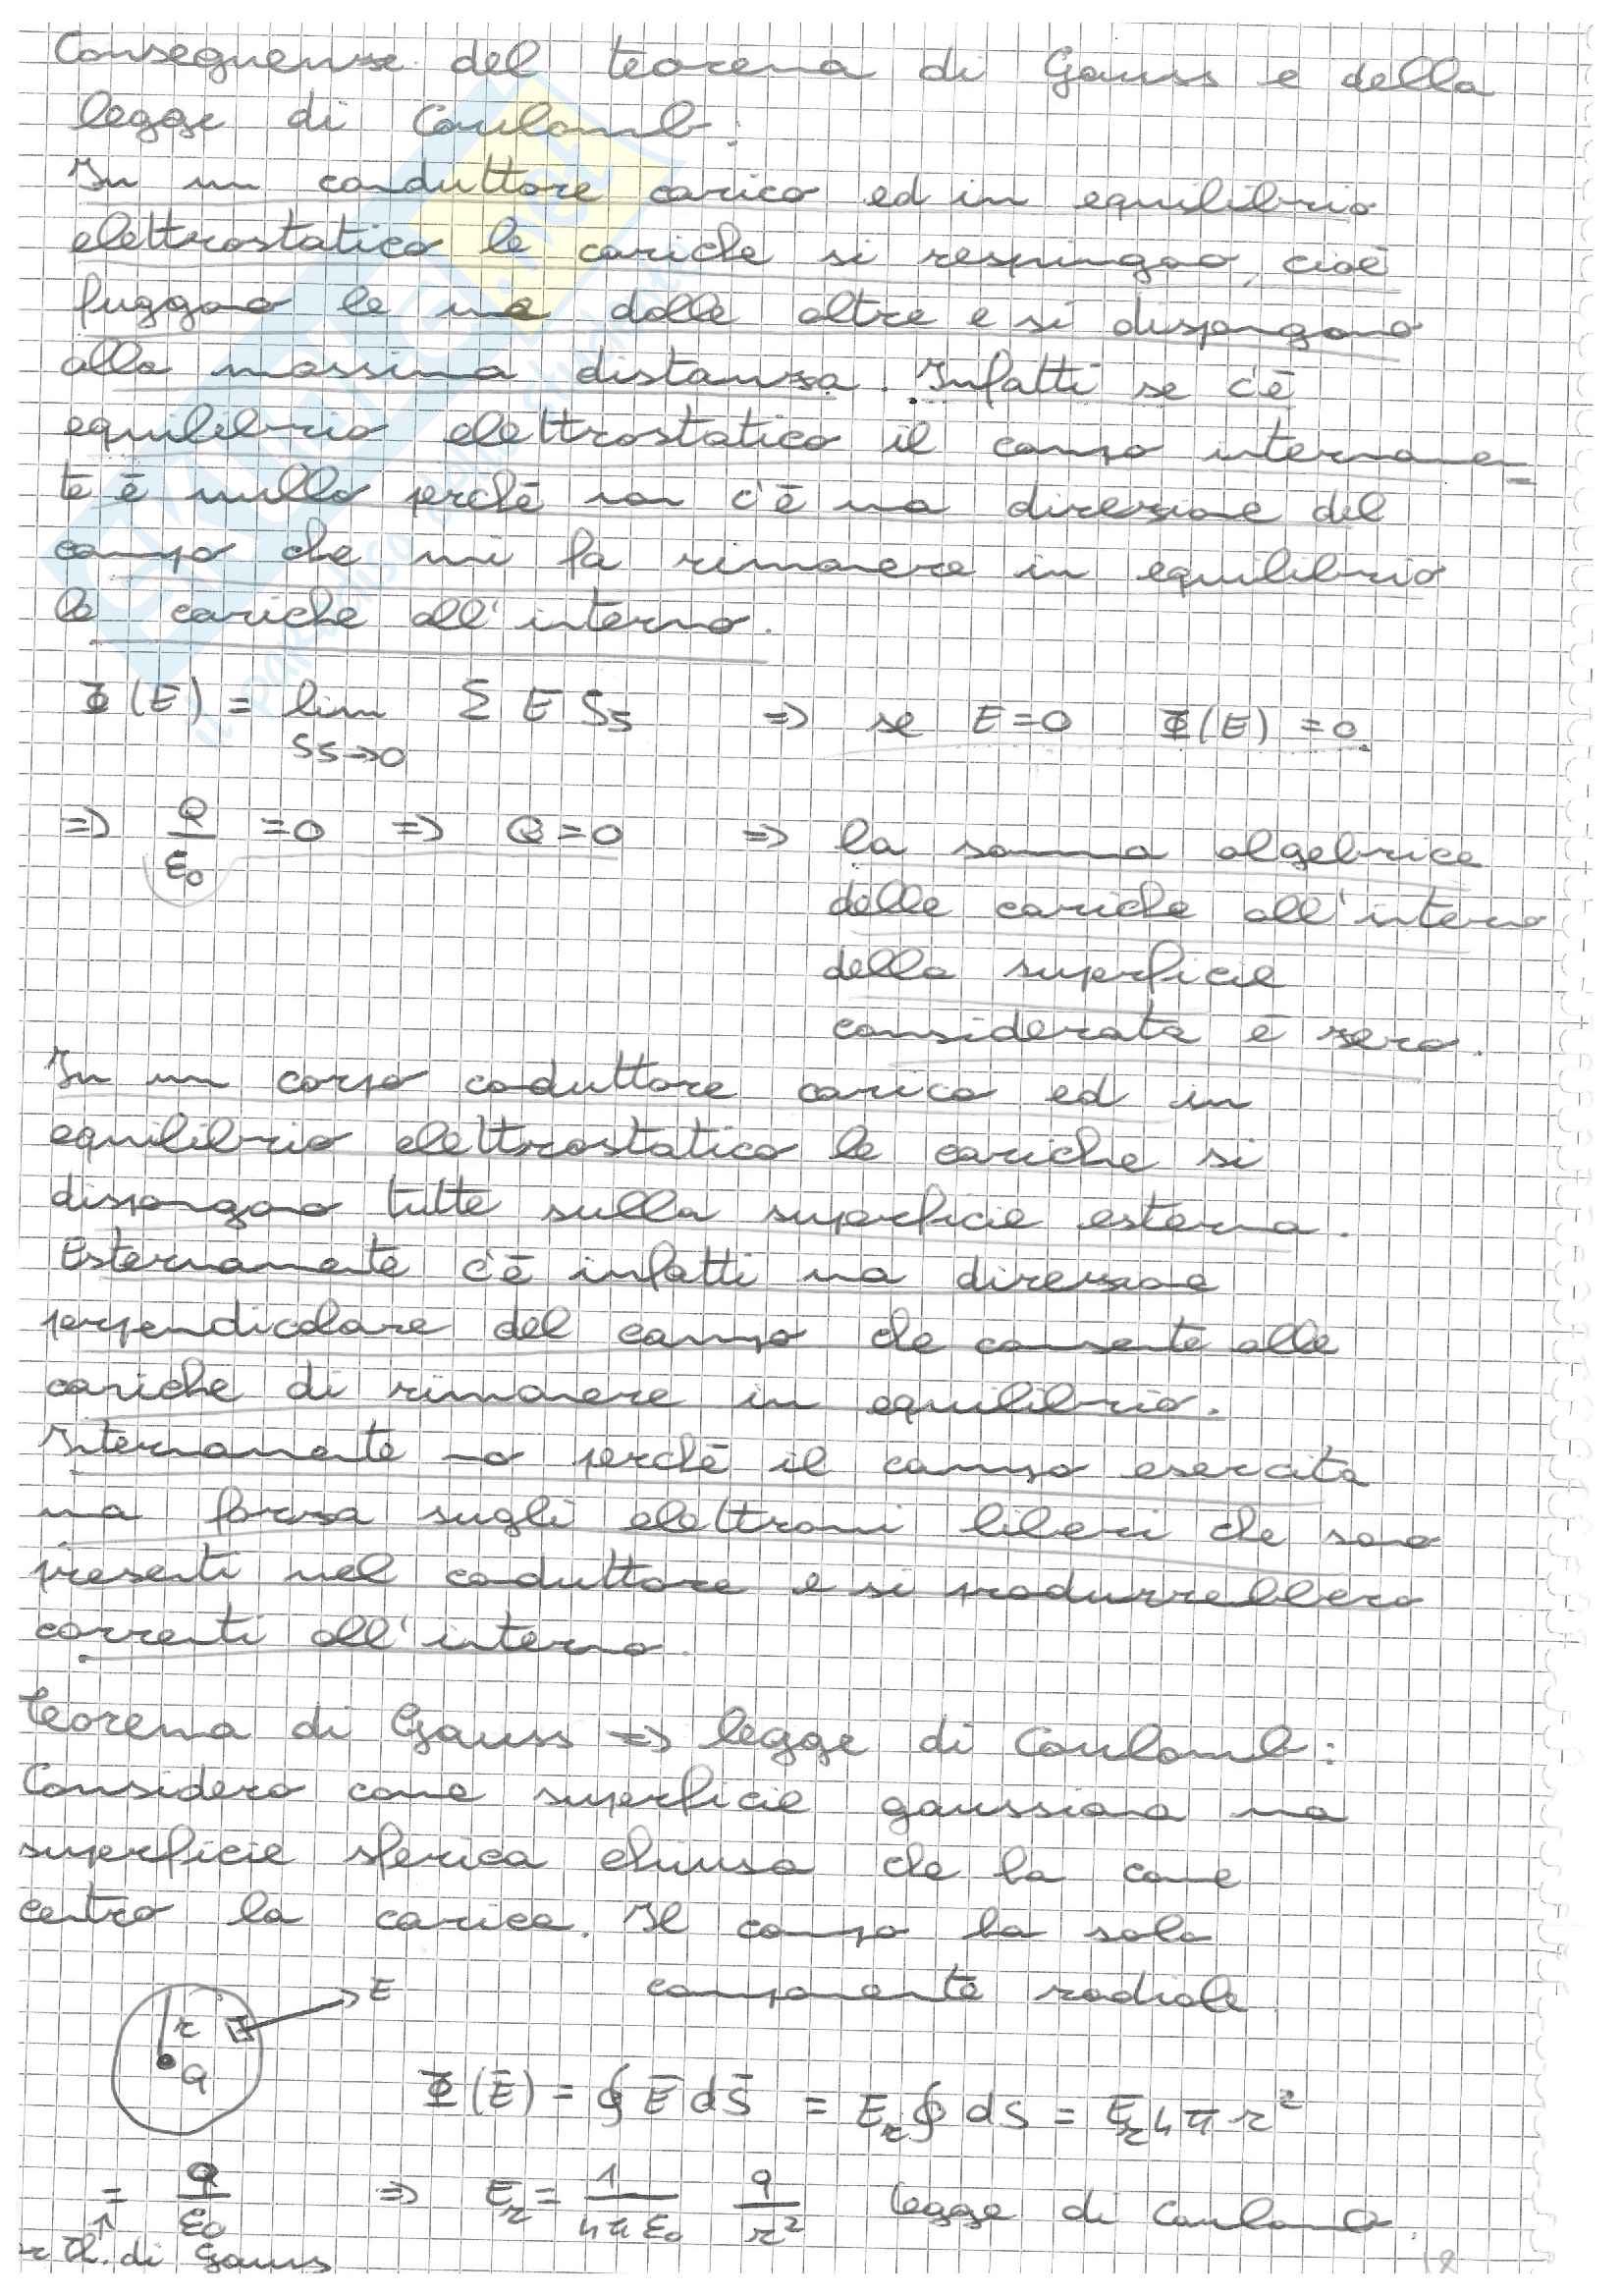 Conseguenze del teorema di Gauss e della
legge di Coulomb:
In un conduttore carico ed in equilibrio
elettrostatico le cariche si respingono, cioè
fuggono le une dalle altre e si dispongono
alla massima distanza. Infatti se c'è
equilibrio elettrostatico il campo internamen-
te è nullo perché non c'è una direzione del
campo che mi fa rimanere in equilibrio
le cariche all'interno.
Φ(E) = lim Σ E S5 => se E=0 Φ(E) = 0.
S5→0
=> Q/ε0 = 0 => Q = 0 => la somma algebrica
delle cariche all'interno
della superficie
considerata è zero.
In un corpo conduttore carico ed in
equilibrio elettrostatico le cariche si
dispongono tutte sulla superficie esterna.
Esternamente c'è infatti una direzione
perpendicolare del campo che consente alle
cariche di rimanere in equilibrio.
Internamente no perché il campo esercita
una forza sugli elettroni liberi che sono
presenti nel conduttore e si produrrebbero
correnti all'interno.
Teorema di Gauss => legge di Coulomb:
Considero come superficie gaussiana una
superficie sferica chiusa che ha come
centro la carica. Il campo ha solo
componente radiale
E
r
q
Φ(E̅) = ∮ E̅ dS̅ = Er ∮ dS = Er 4π r²
= q/ε0 => Er = 1/4πε0 q/r² legge di Coulomb.
↑
th. di Gauss